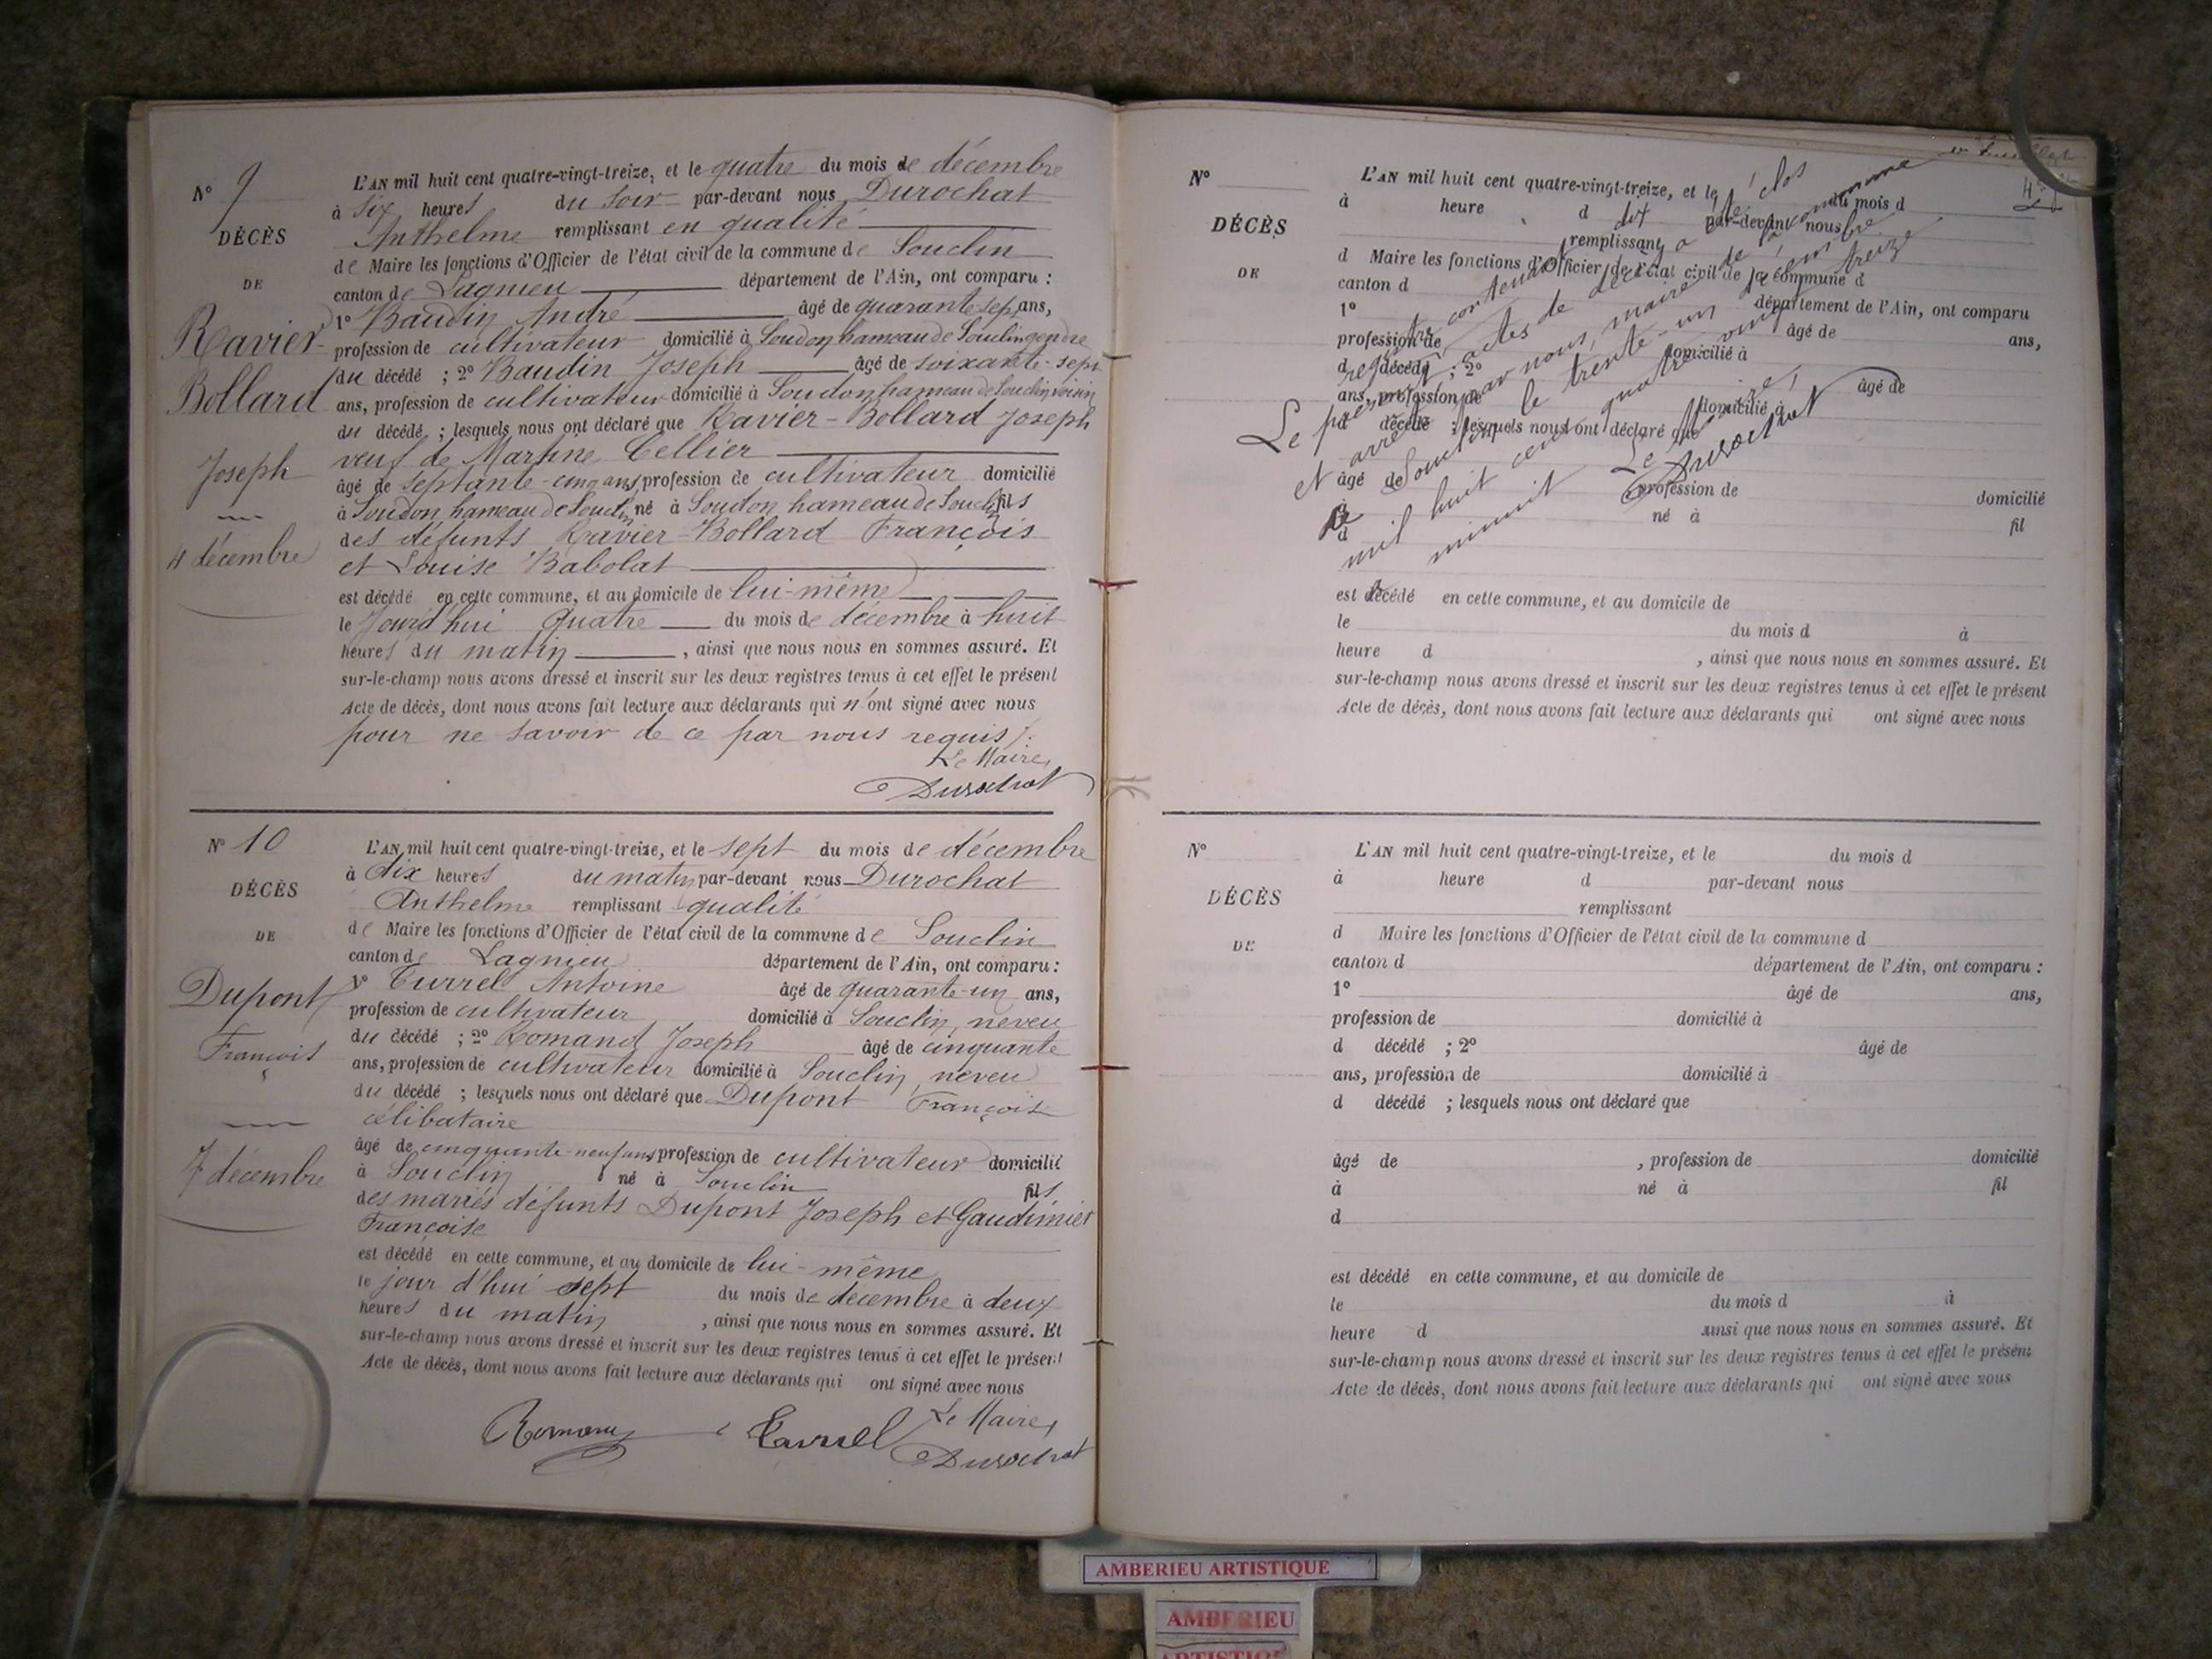 N° 9
DÉCÈS
DE
Ravier-
Bollard
Joseph
4 décembre
L'AN mil huit cent quatre-vingt-treize, et le quatre du mois de décembre
à six heures du soir par-devant nous Durochat
Anthelme remplissant en qualité
de Maire les fonctions d'Officier de l'état civil de la commune de Souclin
canton de Lagnieu département de l'Ain, ont comparu :
1° Baudin André âgé de quarante-sept ans,
profession de cultivateur domicilié à Soudon hameau de Souclin gendre
du décédé ; 2° Baudin Joseph âgé de soixante-sept
ans, profession de cultivateur domicilié à Soudon hameau de Souclin voisin
du décédé ; lesquels nous ont déclaré que Ravier-Bollard Joseph
veuf de Martine Cellier
âgé de septante-cinq ans profession de cultivateur domicilié
à Soudon hameau de Souclin né à Soudon hameau de Souclin fils
des défunts Ravier-Bollard François
et Louise Babolat
est décédé en cette commune, et au domicile de lui-même
le jourd'hui quatre du mois de décembre à huit
heures du matin , ainsi que nous nous en sommes assuré. Et
sur-le-champ nous avons dressé et inscrit sur les deux registres tenus à cet effet le présent
Acte de décès, dont nous avons fait lecture aux déclarants qui n'ont signé avec nous
pour ne savoir de ce par nous requis /.
Le Maire,
Durochat
N° 10
DÉCÈS
DE
Dupont
François
7 décembre
L'AN mil huit cent quatre-vingt-treize, et le sept du mois de décembre
à dix heures du matin par-devant nous Durochat
Anthelme remplissant qualité
de Maire les fonctions d'Officier de l'état civil de la commune de Souclin
canton de Lagnieu département de l'Ain, ont comparu :
1° Turrel Antoine âgé de quarante-un ans,
profession de cultivateur domicilié à Souclin, neveu
du décédé ; 2° Romand Joseph âgé de cinquante
ans, profession de cultivateur domicilié à Souclin, neveu
du décédé ; lesquels nous ont déclaré que Dupont François
célibataire
âgé de cinquante-neuf ans profession de cultivateur domicilié
à Souclin né à Souclin fils
des mariés défunts Dupont Joseph et Gaudimier
Françoise
est décédé en cette commune, et au domicile de lui-même
le jour d'hui sept du mois de décembre à deux
heures du matin , ainsi que nous nous en sommes assuré. Et
sur-le-champ nous avons dressé et inscrit sur les deux registres tenus à cet effet le présent
Acte de décès, dont nous avons fait lecture aux déclarants qui ont signé avec nous
Le Maire,
Romand Turrel Durochat
N°
DÉCÈS
DE
L'AN mil huit cent quatre-vingt-treize, et le du mois d
à heure d par-devant nous
remplissant
d Maire les fonctions d'Officier de l'état civil de la commune d
canton d département de l'Ain, ont comparu
1° âgé de ans,
profession de domicilié à
d décédé ; 2° âgé de
ans, profession de domicilié à
d décédé ; lesquels nous ont déclaré que
âgé de profession de domicilié
à né à fil
d
est décédé en cette commune, et au domicile de
le du mois d à
heure d , ainsi que nous nous en sommes assuré. Et
sur-le-champ nous avons dressé et inscrit sur les deux registres tenus à cet effet le présent
Acte de décès, dont nous avons fait lecture aux déclarants qui ont signé avec nous
Le présent registre contenant dix
actes de décès a été clos
et arrêté par nous, maire de la commune
de Souclin, le trente-un décembre
mil huit cent quatre vingt treize
minuit
Le Maire,
Durochat
N°
DÉCÈS
DE
L'AN mil huit cent quatre-vingt-treize, et le du mois d
à heure d par-devant nous
remplissant
d Maire les fonctions d'Officier de l'état civil de la commune d
canton d département de l'Ain, ont comparu :
1° âgé de ans,
profession de domicilié à
d décédé ; 2° âgé de
ans, profession de domicilié à
d décédé ; lesquels nous ont déclaré que
âgé de , profession de domicilié
à né à fil
d
est décédé en cette commune, et au domicile de
le du mois d à
heure d ainsi que nous nous en sommes assuré. Et
sur-le-champ nous avons dressé et inscrit sur les deux registres tenus à cet effet le présent
Acte de décès, dont nous avons fait lecture aux déclarants qui ont signé avec nous
AMBERIEU ARTISTIQUE
AMBERIEU
ARTISTIQUE